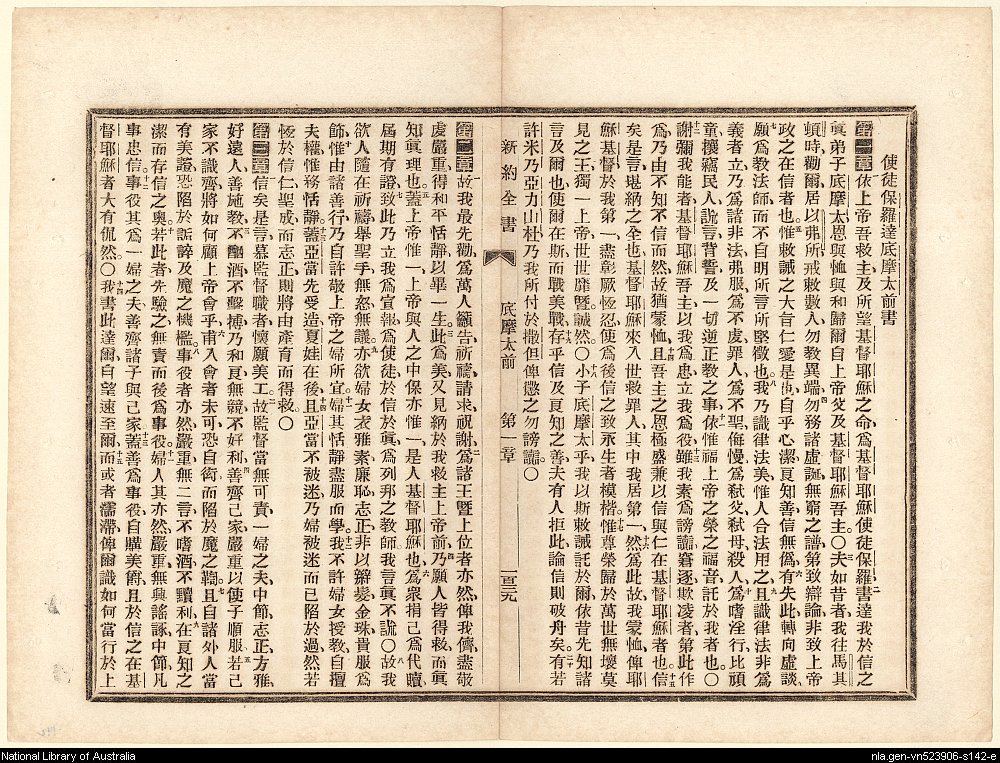 使徒保羅達底摩太前書
第一章依上帝吾救主及所望基督耶穌之命爲基督耶穌使徒保羅書達我於信之
眞弟子底摩太恩與恤與和歸爾自上帝父及基督耶穌吾主〇夫如昔者我往馬其
頓時勸爾居以弗所戒敕數人勿教異端勿務諸虛誕無窮之譜第致辯論非致上帝
政之在信者也惟敕誡之大旨仁愛是也自乎心潔良知善信無僞有失此轉向虛談
願爲教法師而不自明所言所堅徵也我乃識律法美惟人合法用之且識律法非爲
義者立乃爲諸非法弗服爲不虔罪人爲不聖侮慢爲弒父弒母殺人爲嗜淫行比頑
童攘竊民人謊言背誓及一切逆正教之事依惟福上帝之榮之福音託於我者也〇
謝彌我能者基督耶穌吾主以我爲忠立我爲役雖我素爲謗讟窘逐欺凌者第此作
爲乃由不知不信而然故猶蒙恤且吾主之恩極盛兼以信與仁在基督耶穌者也信
矣是言堪納之全也基督耶穌來入世救罪人其中我居第一然爲此故我蒙恤俾耶
穌基督於我第一盡彰厥恆忍使爲後信之致永生者模楷惟尊榮歸於萬世無壞莫
見之王獨一上帝世世靡曁誠然〇小子底摩太乎我以斯敕誡託於爾依昔先知諸
言及爾也使爾在斯而戰美戰存乎信及良知之善夫有人拒此論信則破舟矣有若
許米乃亞力山杜乃我所付於撒但俾懲之勿謗讟〇
新約全書 底摩太前 第一章 一百三九
第二章故我最先勸爲萬人籲告祈禱請求祝謝爲諸王曁上位者亦然俾我儕盡敬
虔嚴重得和平恬靜以畢一生此爲美又見納於我救主上帝前乃願人皆得救而眞
知眞理也蓋上帝惟一上帝與人之中保亦惟一是人基督耶穌也爲衆捐己爲代贖
屆期有證致此乃立我爲宣報爲使徒於信於眞爲列邦之教師我言眞不謊〇故我
欲人隨在祈禱舉聖手無怒無議亦欲婦女衣雅素廉恥志正非以辮髮金珠貴服爲
飾惟由諸善行乃自許敬上帝之婦所宜婦其恬靜盡服而學我不許婦女授教自擅
夫權惟務恬靜蓋亞當先受造夏娃在後且亞當不被迷乃婦被迷而已陷於過然若
恆於信仁聖成而志正則將由產育而得救〇
第三章信矣是言慕監督職者懷願美工故監督當無可責一婦之夫中節志正方雅
好遠人善施教不酗酒不擊搏乃和良無競不好利善齊己家嚴重以使子順服若己
家不識齊將如何顧上帝會乎甫入會者未可恐自衒而陷於魔之鞫且自諸外人當
有美證恐陷於詬誶及魔之機檻事役者亦然嚴重無二言不嗜酒不黷利在良知之
潔而存信之奧若此者先驗之無責而後爲事役婦人其亦然嚴重無興謠諑中節凡
事忠信事役其爲一婦之夫善齊諸子與己家蓋善爲事役自購美爵且於信之在基
督耶穌者大有侃然〇我書此達爾自望速至爾而或者濡滯俾爾識如何當行於上
National Library of Australia
nla.gen-vn523906-s142-e